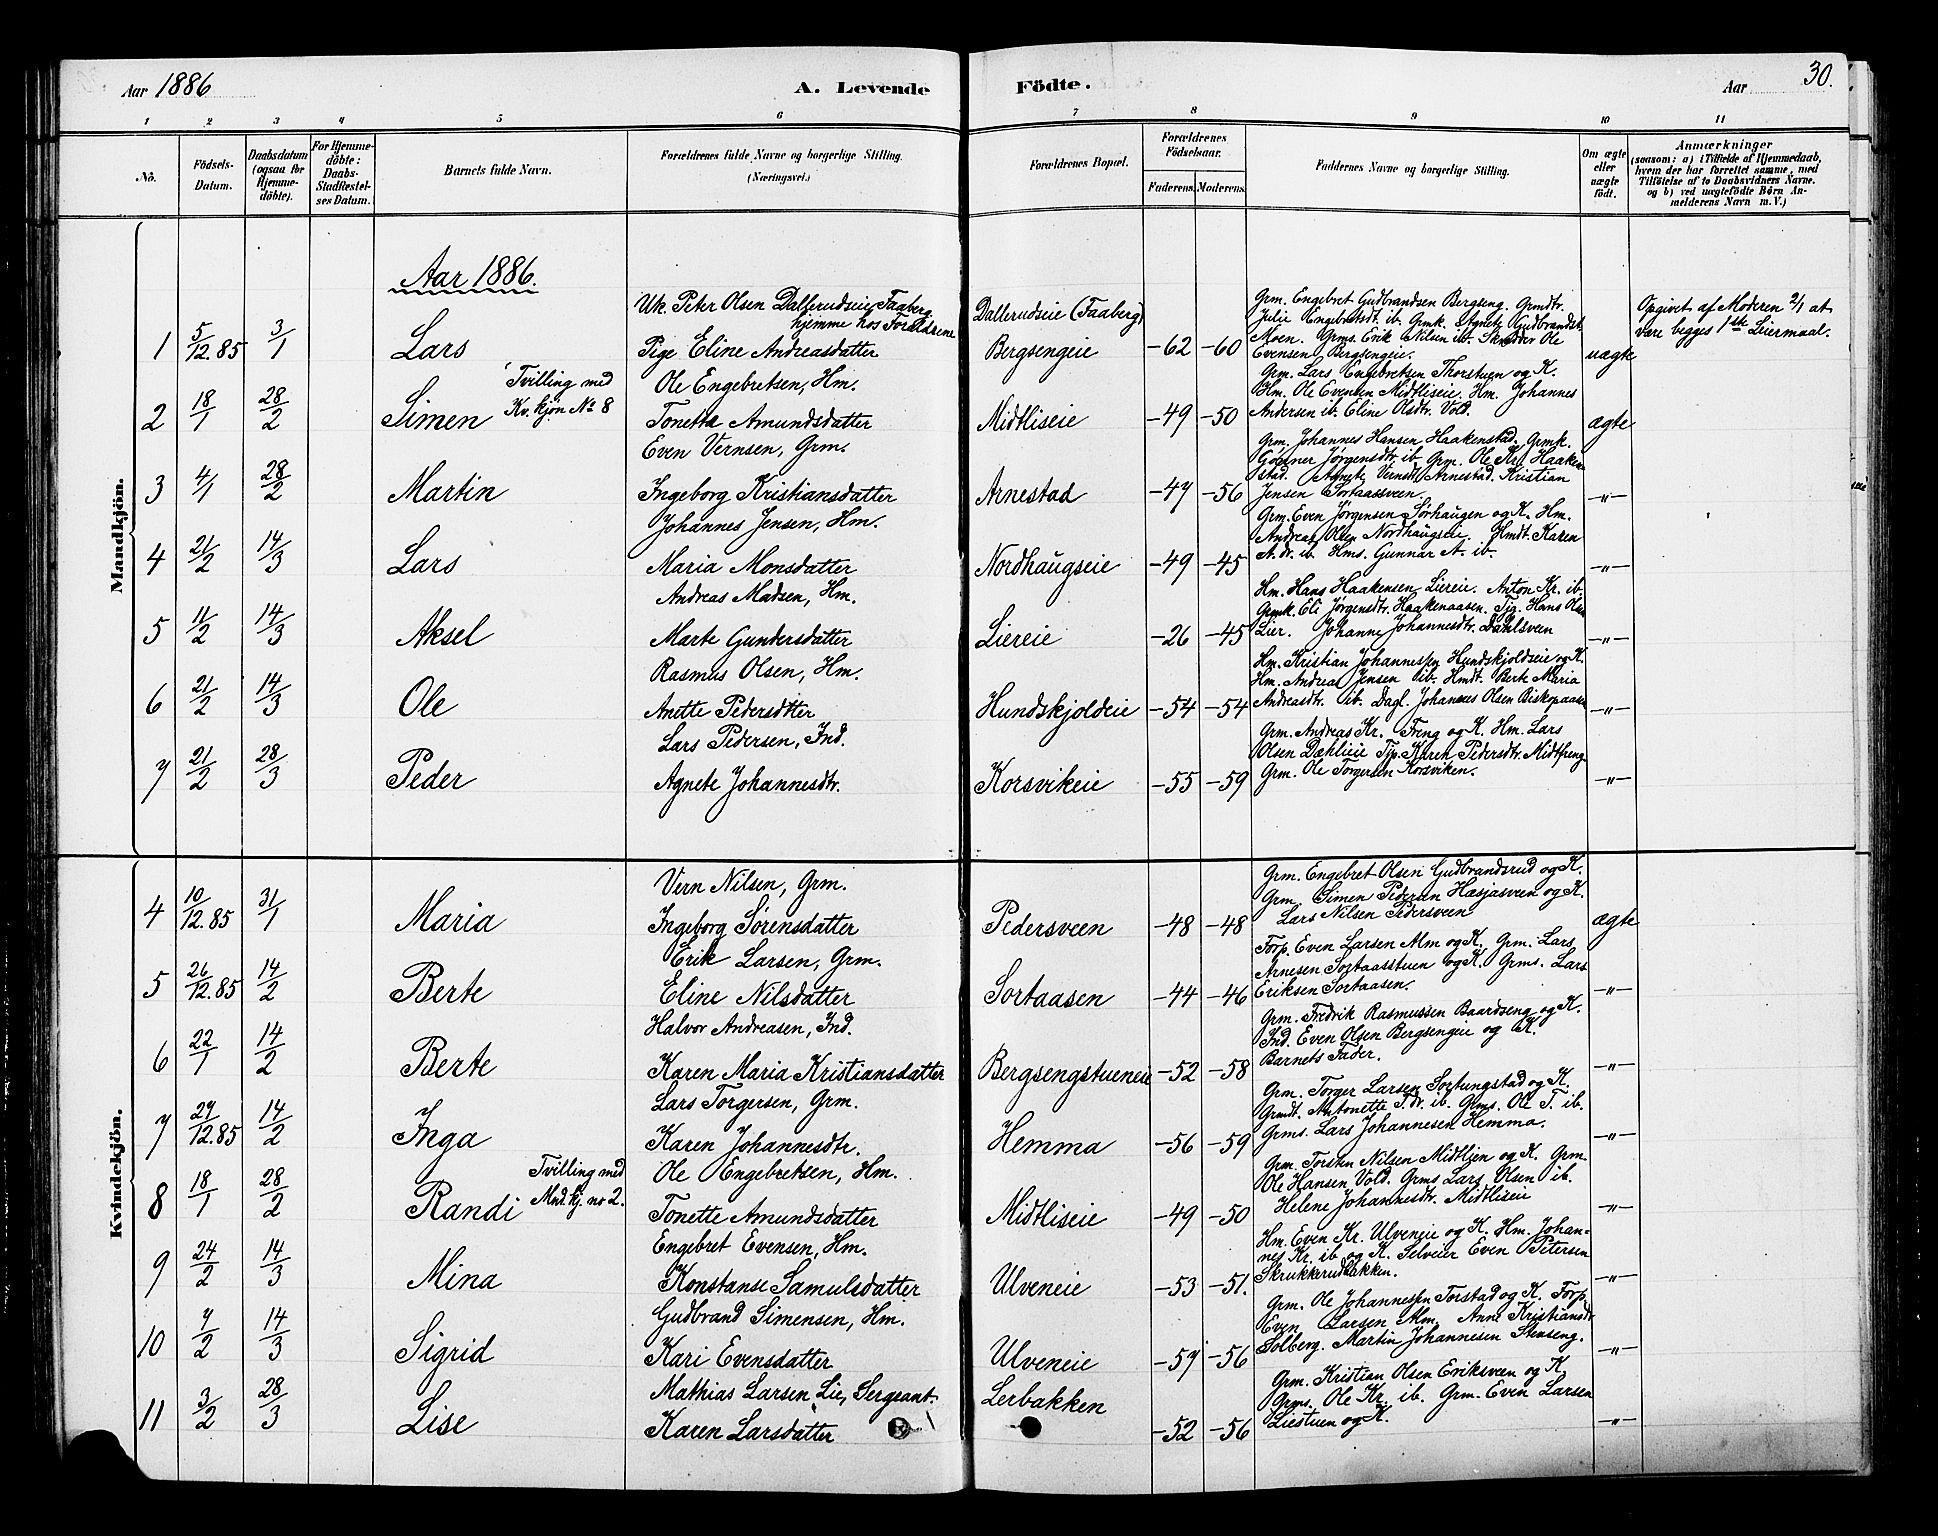 Aar 1886
A. Levende Födte.
Aar 30.
1 2 3 4 5 6 7 8 9 10 11
No.
Födsels-Datum.
Daabsdatum (ogsaa for Hjemme-döbte).
For Hjemme-döbte: Daabs-Stadfestel-ses Datum.
Barnets fulde Navn.
Forældrenes fulde Navne og borgerlige Stilling. (Næringsvei.)
Forældrenes Bopæl.
Forældrenes Födselsaar.
Faderens. Moderens.
Faddernes Navne og borgerlige Stilling.
Om ægte eller uægte födt.
Anmærkninger
(saasom: a) i Tilfælde af Hjemmedaab,
hvem der har forrettet samme, med
Tilföielse af to Daabsvidners Navne.
og b) ved uægtefödte Börn An-
melderens Navn m. V.)
Mandkjön.
Aar 1886.
1 5/12.85 3/1 Lars
Uk. Peter Olsen Dallerudseie Faaberg
hjemme hos Forældrene
Pige Eline Andreasdatter
Dallerudseie (Faaberg)
Bergsengeie -62 -60
Grm. Engebret Gudbrandsen Bergseng. Grmdtr.
Julie Engebretsdt. ib. Grmk. Agnete Gudbrandsd.
Moen. Grms. Erik Nilsen ib. Skrædder Ole
Evensen Bergsengeie.
uægte
Opgivet af Moderen 2/1 at
være begges 1ste Leiermaal.
2 18/1 28/2 Simen
Tvilling med
Kv.kjøn No 8
Ole Engebretsen, Hm.
Tonetta Amundsdatter
Midtliseie -49 -50
Grm. Lars Engebretsen Thorstuen og K.
Hm. Ole Evensen Midtliseie. Hm. Johannes
Andersen ib. Eline Olsdtr. Vold.
ægte
3 4/1 28/2 Martin
Even Vernsen, Grm.
Ingeborg Kristiansdatter
Arnestad -47 -56
Grm. Johannes Hansen Haakenstad. Grmk.
Jørgensdtr. ib. Grm. Ole Kr. Haaken-
stad. Agnete Vernsdt. Arnestad. Kristian
Jensen Sortaassveen.
-"-
4 21/2 14/3 Lars
Johannes Jensen, Hm.
Maria Monsdatter
Nordhaugseie -49 -45
Grm. Even Jørgensen Sørhaugen og K. Hm.
Andreas Olsen Nordhaugseie. Hmdt. Karen
A. dr. ib. Hms. Gunnar A. ib.
-"-
5 11/2 14/3 Aksel
Andreas Madsen, Hm.
Marte Gundersdatter
Liereie -26 -45
Hm. Hans Haakensen Liereie. Anton Kr. ib.
Grmk. Eli Jørgensdtr. Haakenaasen. Hans Olsen
Lier. Johanne Johannesdtr. Dahlsveen
-"-
6 21/2 14/3 Ole
Rasmus Olsen, Hm.
Anette Pedersdtter
Hundskjoldeie -54 -54
Hm. Kristian Johannessen Hundskjoldseie og K.
Hm. Andreas Jensen ib. Hmdt. Berte Maria
Andreasdtr. ib. Dagl. Johannes Olsen Biskopaasen
-"-
7 21/2 28/3 Peder
Lars Pedersen, Ind.
Agnete Johannesdtr.
Korsvikeie -55 -59
Grm. Andreas Kr. Freng og K. Hm. Lars
Olsen Dæhlieie Tjp. Karen Pedersdtr. Midtfreng.
Grm. Ole Torgersen Korsviken.
-"-
Kvindekjön.
4 10/12.85 31/1 Maria
Vern Nilsen, Grm.
Ingeborg Sørensdatter
Pedersveen -48 -48
Grm. Engebret Olsen Gudbrandsrud og K.
Grm. Simen Pedersen Hasjasveen og K.
Lars Nilsen Pedersveen
ægte
5 26/12.85 14/2 Berte
Erik Larsen, Grm.
Eline Nilsdatter
Sortaasen -44 -46
Forp. Even Larsen Mm og K. Grm. Lars
Arnesen Sortaasstuen og K. Grms. Lars
Eriksen Sortaasen.
-"-
6 22/1 14/2 Berte
Halvor Andreasen, Ind.
Karen Maria Kristiansdatter
Bergsengstueneie -52 -58
Grm. Fredrik Rasmussen Baardseng og K.
Ind. Even Olsen Bergsengeie og K.
Barnets Fader.
-"-
7 27/12.85 14/2 Inga
Lars Torgersen, Grm.
Karen Johannesdtr.
Hemma -56 -59
Grm. Torger Larsen Sortungstad og K.
Grmdt. Antonette T.dr. ib. Grms. Ole T. ib.
Grms. Lars Johannesen Hemma.
-"-
8 18/1 28/2 Randi
Tvilling med
Mnd.kj. no 2.
Ole Engebretsen, Hm.
Tonette Amundsdatter
Midtliseie -49 -50
Grm. Torsten Nilsen Midtlien og K. Grm.
Ole Hansen Vold. Grms Lars Olsen ib.
Helene Johannesdtr. Midtliseie
-"-
9 24/2 14/3 Mina
Engebret Evensen, Hm.
Konstanse Samulsdatter
Ulveneie -53 -51.
Hm. Even Kr. Ulveneie og K. Hm. Johan-
nes Kr. ib. og K. Selveier Even Petersen
Skrukkerudbakken.
-"-
10 7/2 14/3 Sigrid
Gudbrand Simensen, Hm.
Kari Evensdatter
Ulveneie -57 -56
Grm. Ole Johannessen Torstad og K. Forp.
Even Larsen Mm. Anne Kristiansdr
Solberg. Martin Johannesen Stenseng.
-"-
11 3/2 28/3 Lise
Mathias Larsen Lie, Sergeant.
Karen Larsdatter
Lerbakken -52 -56
Grm. Kristian Olsen Eriksveen og K.
Grms. Ole Kr. ib. Grm. Even Larsen
Liestuen og K.
-"-